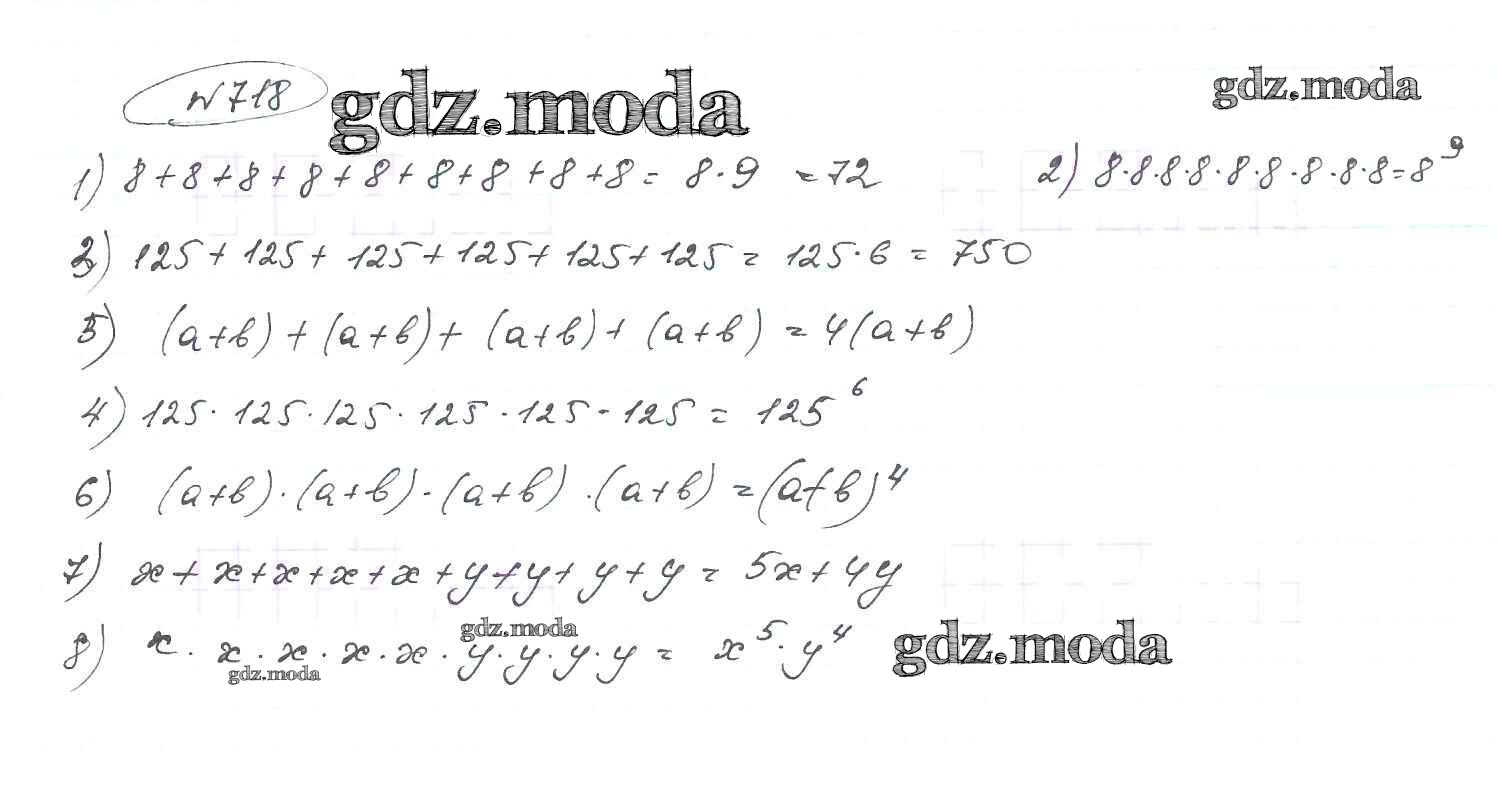 №718 gdz.moda gdz.moda
1) 8+8+8+8+8+8+8+8+8= 8·9 =72 2) 8·8·8·8·8·8·8·8·8=8⁹
3) 125+125+125+125+125+125= 125·6= 750
5) (a+b)+(a+b)+(a+b)+(a+b)=4(a+b)
4) 125·125·125·125·125·125= 125⁶
6) (a+b)·(a+b)·(a+b)·(a+b)=(a+b)⁴
7) x+x+x+x+x+y+y+y+y= 5x+4y
gdz.moda
8) x·x·x·x·x·y·y·y·y= x⁵·y⁴ gdz.moda
gdz.moda